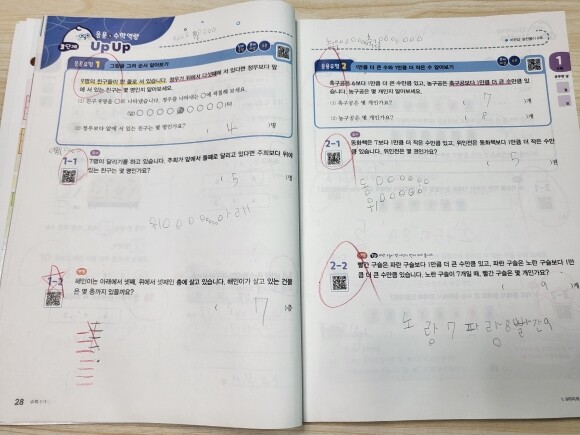 응용·수학역량
Up Up
응용유형 1 그림을 그려 순서 알아보기
9명의 친구들이 한 줄로 서 있습니다. 정우가 뒤에서 다섯째에 서 있다면 정우보다 앞
에 서 있는 친구는 몇 명인지 알아보세요.
(2) 정우보다 앞에 서 있는 친구는 몇 명인가요?
( 4 )명
1-1
7명이 달리기를 하고 있습니다. 주희가 앞에서 둘째로 달리고 있다면 주희보다 뒤에
있는 친구는 몇 명인가요?
( 5 )명
1-2
해인이는 아래에서 셋째, 위에서 셋째인 층에 살고 있습니다. 해인이가 살고 있는 건물
은 몇 층까지 있을까요?
( 7 )층
28
응용유형 2 1만큼 더 큰 수와 1만큼 더 작은 수 알아보기
축구공은 6보다 1만큼 더 큰 수만큼 있고, 농구공은 축구공보다 1만큼 더 큰 수만큼 있
습니다. 농구공은 몇 개인지 알아보세요.
(1) 축구공은 몇 개인가요?
( 7 )개
(2) 농구공은 몇 개인가요?
( 8 )개
2-1
동화책은 7보다 1만큼 더 작은 수만큼 있고, 위인전은 동화책보다 1만큼 더 작은 수만
큼 있습니다. 위인전은 몇 권인가요?
( 5 )권
동 000000
위 00000
2-2
빨간 구슬은 파란 구슬보다 1만큼 더 큰 수만큼 있고, 파란 구슬은 노란 구슬보다 1만
큼 더 큰 수만큼 있습니다. 노란 구슬이 7개일 때, 빨간 구슬은 몇 개인가요?
( 9 )개
노랑 7 파랑 8 빨간 9